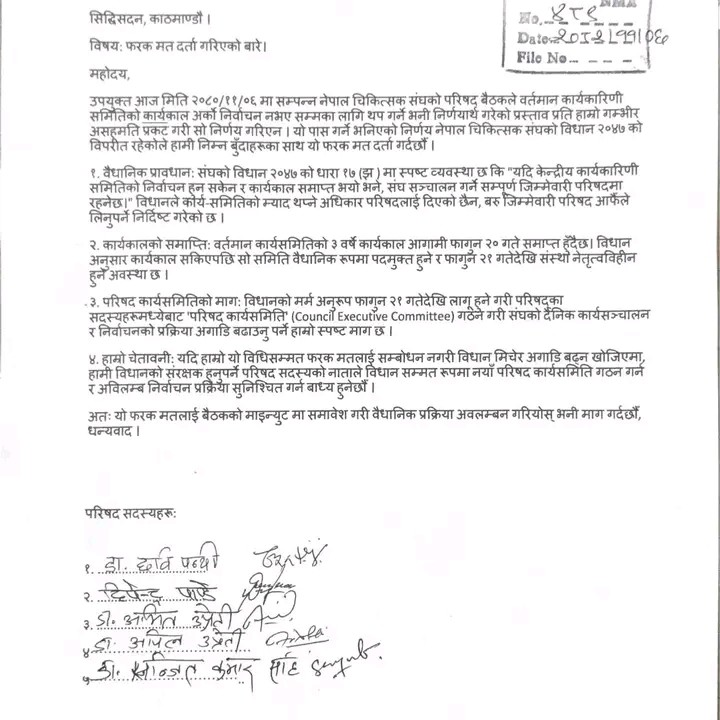 NMA
सिद्धिसदन, काठमाण्डौ ।
No.
Date:
File No
विषय: फरक मत दर्ता गरिएको बारे।
महोदय,
उपयुक्त आज मिति २०८०/११/०६ मा सम्पन्न नेपाल चिकित्सक संघको परिषद् बैठकले वर्तमान कार्यकारिणी
समितिको कार्यकाल अर्को निर्वाचन नभए सम्मका लागि थप गर्ने भनी निर्णयार्थ गरेको प्रस्ताव प्रति हाम्रो गम्भीर
असहमति प्रकट गरी सो निर्णय गरिएन । यो पास गर्ने भनिएको निर्णय नेपाल चिकित्सक संघको विधान २०४७ को
विपरीत रहेकोले हामी निम्न बुँदाहरूका साथ यो फरक मत दर्ता गर्दछौं ।
१. वैधानिक प्रावधान: संघको विधान २०४७ को धारा १७ (झ) मा स्पष्ट व्यवस्था छ कि "यदि केन्द्रीय कार्यकारिणी
समितिको निर्वाचन हुन सकेन र कार्यकाल समाप्त भयो भने, संघ सञ्चालन गर्ने सम्पूर्ण जिम्मेवारी परिषदमा
रहनेछ।" विधानले कार्य-समितिको म्याद थप्ने अधिकार परिषदलाई दिएको छैन, बरु जिम्मेवारी परिषद आफैंले
लिनुपर्ने निर्दिष्ट गरेको छ ।
२. कार्यकालको समाप्ति: वर्तमान कार्यसमितिको ३ वर्षे कार्यकाल आगामी फागुन २० गते समाप्त हुँदैछ। विधान
अनुसार कार्यकाल सकिएपछि सो समिति वैधानिक रूपमा पदमुक्त हुने र फागुन २१ गतेदेखि संस्था नेतृत्वविहीन
हुने अवस्था छ ।
३. परिषद कार्यसमितिको माग: विधानको मर्म अनुरूप फागुन २१ गतेदेखि लागू हुने गरी परिषद्का
सदस्यहरूमध्येबाट 'परिषद कार्यसमिति' (Council Executive Committee) गठन गरी संघको दैनिक कार्यसञ्चालन
र निर्वाचनको प्रक्रिया अगाडि बढाउनु पर्ने हाम्रो स्पष्ट माग छ ।
४. हाम्रो चेतावनी: यदि हाम्रो यो विधिसम्मत फरक मतलाई सम्बोधन नगरी विधान मिचेर अगाडि बढ्न खोजिएमा,
हामी विधानको संरक्षक हुनुपर्ने परिषद सदस्यको नाताले विधान सम्मत रूपमा नयाँ परिषद कार्यसमिति गठन गर्न
र अविलम्ब निर्वाचन प्रक्रिया सुनिश्चित गर्न बाध्य हुनेछौं ।
अतः यो फरक मतलाई बैठकको माइन्युट मा समावेश गरी वैधानिक प्रक्रिया अवलम्बन गरियोस् भनी माग गर्दछौं,
धन्यवाद ।
परिषद सदस्यहरू:
१. डा. छवि पन्थी
२. दिपेन्द्र पाण्डे
३. डा. अमित उप्रेती
४. डा. अपिल उप्रेती
५. डा. कुमार साह